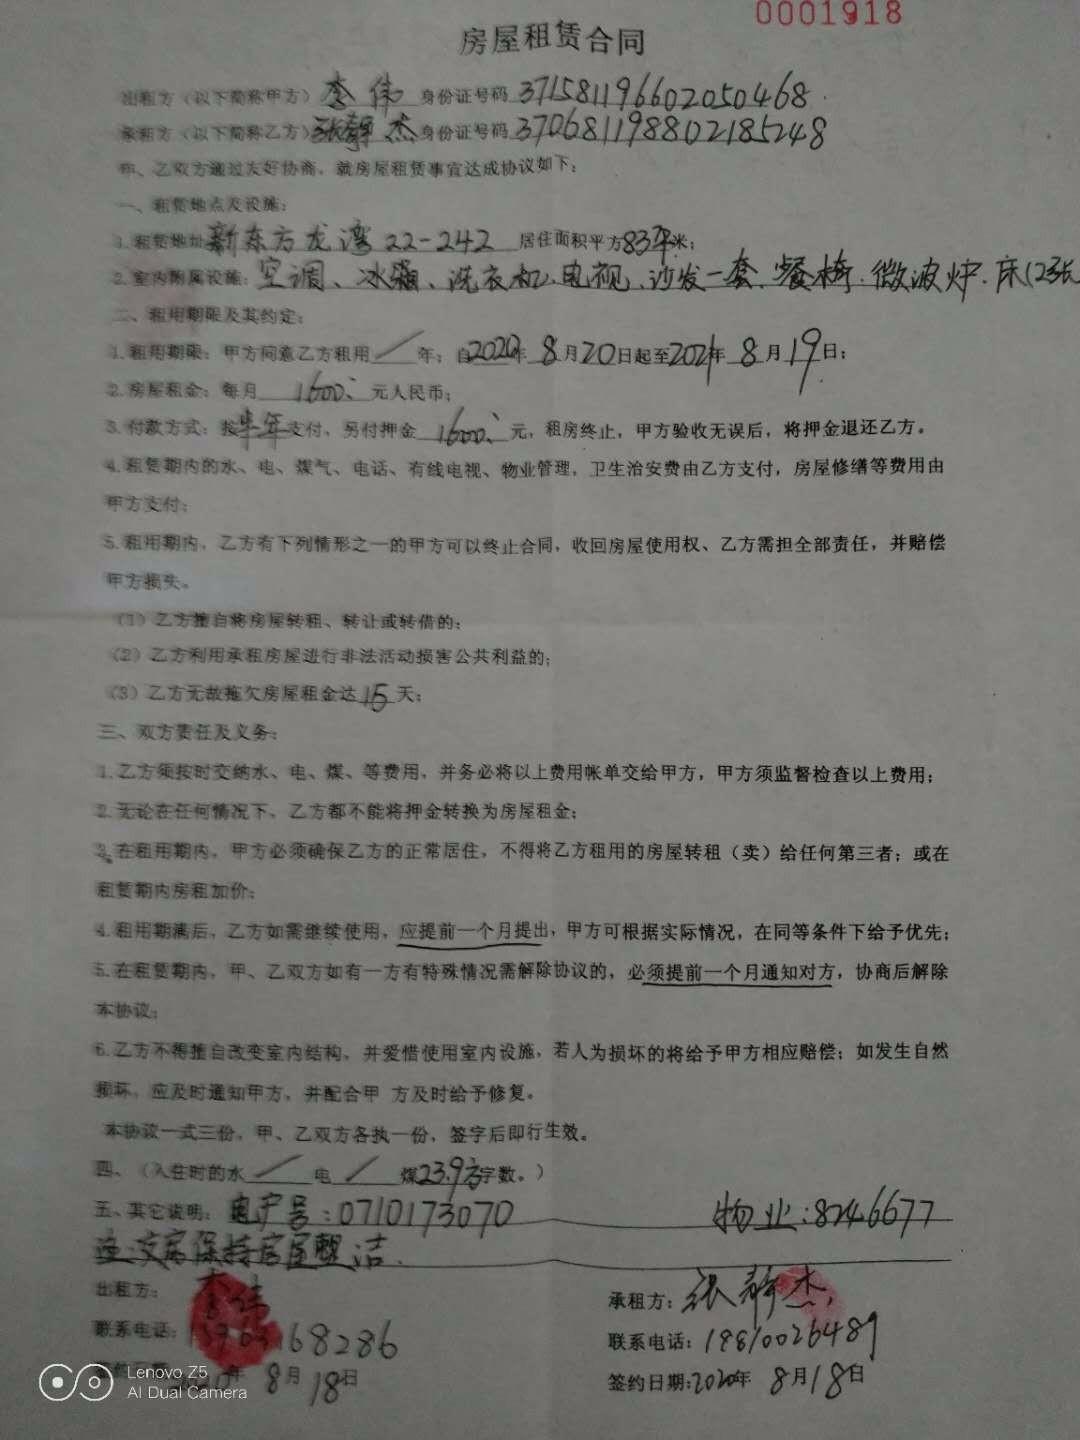 0001918
房屋租赁合同
出租方（以下简称甲方）李伟 身份证号码 371581196602050468
承租方（以下简称乙方）张静杰 身份证号码 370681198802185248
甲、乙双方通过友好协商，就房屋租赁事宜达成协议如下：
一、租赁地点及设施：
1.租赁地址新东方龙湾22-242 居住面积平方83平米；
2.室内附属设施：空调、冰箱、洗衣机、电视、沙发一套、餐椅、微波炉、床(2张
二、租用期限及其约定：
1.租用期限：甲方同意乙方租用/年；自2020年8月20日起至2021年8月19日；
2.房屋租金：每月1600元人民币；
3.付款方式：按半年支付，另付押金1600元，租房终止，甲方验收无误后，将押金退还乙方。
4.租赁期内的水、电、煤气、电话、有线电视、物业管理，卫生治安费由乙方支付，房屋修缮等费用由
甲方支付；
5.租用期内，乙方有下列情形之一的甲方可以终止合同，收回房屋使用权、乙方需担全部责任，并赔偿
甲方损失。
（1）乙方擅自将房屋转租、转让或转借的；
（2）乙方利用承租房屋进行非法活动损害公共利益的；
（3）乙方无故拖欠房屋租金达15天；
三、双方责任及义务：
1.乙方须按时交纳水、电、煤、等费用，并务必将以上费用帐单交给甲方，甲方须监督检查以上费用；
2.无论在任何情况下、乙方都不能将押金转换为房屋租金；
3.在租用期内，甲方必须确保乙方的正常居住，不得将乙方租用的房屋转租（卖）给任何第三者；或在
租赁期内房租加价；
4.租用期满后，乙方如需继续使用，应提前一个月提出，甲方可根据实际情况，在同等条件下给予优先；
5.在租赁期内，甲、乙双方如有一方有特殊情况需解除协议的，必须提前一个月通知对方，协商后解除
本协议；
6.乙方不得擅自改变室内结构，并爱惜使用室内设施，若人为损坏的将给予甲方相应赔偿；如发生自然
损坏，应及时通知甲方，并配合甲 方及时给予修复。
本协议一式三份，甲、乙双方各执一份，签字后即行生效。
四、（入住时的水/电/煤23.9方字数。）
五、其它说明：电户号：0710173070 物业：8246677
交房保持房屋整洁.
出租方：李伟 承租方：张静杰
联系电话：68286 联系电话：18810026489
2020年8月18日 签约日期：2020年8月18日
Lenovo Z5
AI Dual Camera